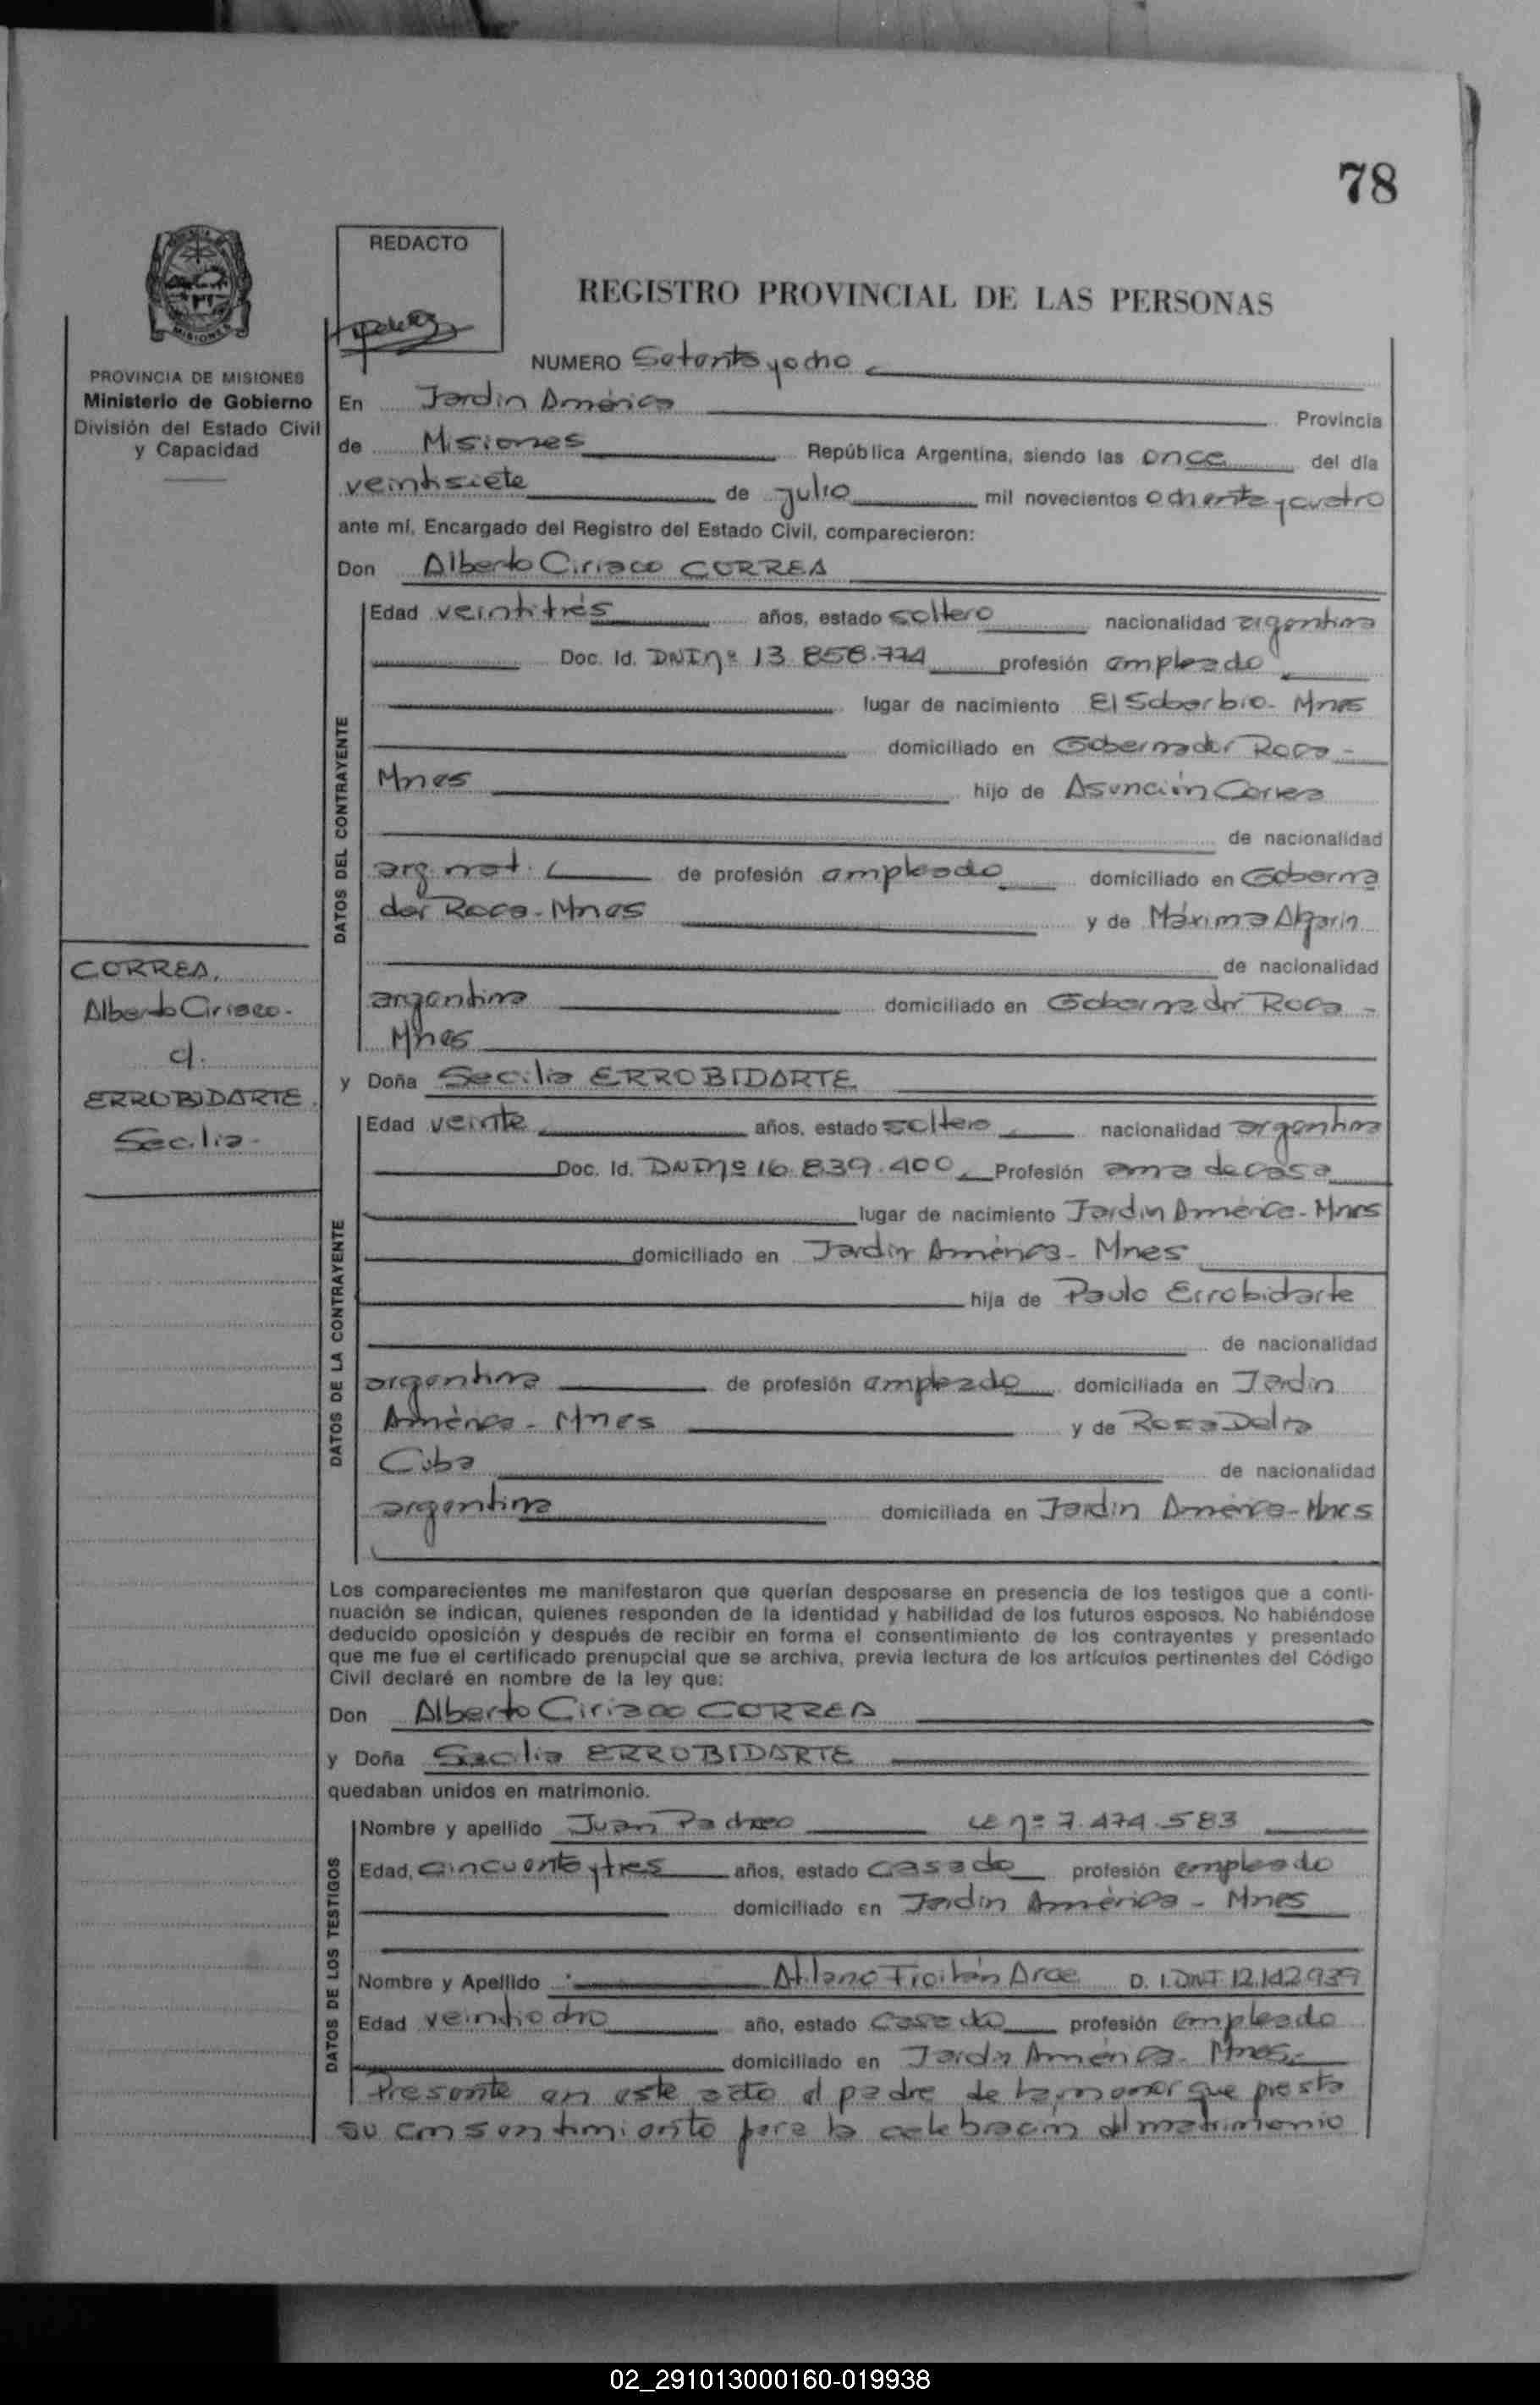 78
REDACTO
REGISTRO PROVINCIAL DE LAS PERSONAS
MISIONES
PROVINCIA DE MISIONES
Ministerio de Gobierno
División del Estado Civil
y Capacidad
NUMERO Setenta y ocho
En Jardin América Provincia
de Misiones República Argentina, siendo las once del día
veintisiete de julio mil novecientos ochenta y cuatro
ante mí, Encargado del Registro del Estado Civil, comparecieron:
Don Alberto Ciriaco CORREA
DATOS DEL CONTRAYENTE
Edad veintitrés años, estado soltero nacionalidad argentina
Doc. Id. DNI nº 13.858.774 profesión empleado
lugar de nacimiento El Soberbio - Mnes
domiciliado en Gobernador Roca -
Mnes hijo de Asunción Correa
de nacionalidad
arg. nat. de profesión empleado domiciliado en Goberna
dor Roca - Mnes y de Máxima Algarin
de nacionalidad
argentina domiciliado en Gobernador Roca -
Mnes
CORREA,
Alberto Ciriaco -
c/.
ERROBIDARTE
Secilia -
y Doña Secilia ERROBIDARTE
DATOS DE LA CONTRAYENTE
Edad veinte años, estado soltera nacionalidad argentina
Doc. Id. DNI nº 16.839.400 Profesión ama de casa
lugar de nacimiento Jardin América - Mnes
domiciliado en Jardin América - Mnes
hija de Paulo Errobidarte
de nacionalidad
argentina de profesión empleado domiciliada en Jardin
América - Mnes y de Rosa Delia
Cuba de nacionalidad
argentina domiciliada en Jardin América - Mnes
Los comparecientes me manifestaron que querían desposarse en presencia de los testigos que a conti-
nuación se indican, quienes responden de la identidad y habilidad de los futuros esposos. No habiéndose
deducido oposición y después de recibir en forma el consentimiento de los contrayentes y presentado
que me fue el certificado prenupcial que se archiva, previa lectura de los artículos pertinentes del Código
Civil declaré en nombre de la ley que:
Don Alberto Ciriaco CORREA
y Doña Secilia ERROBIDARTE
quedaban unidos en matrimonio.
DATOS DE LOS TESTIGOS
Nombre y apellido Juan LE nº 7.474.583
Edad, cincuenta y tres años, estado casado profesión empleado
domiciliado en Jardin América - Mnes
Nombre y Apellido Atilano Froilán Arce D. I. DNI 12.142.939
Edad veintiocho año, estado casado profesión empleado
domiciliado en Jardin América - Mnes
Presente en este acto el padre de la menor que presta
su consentimiento para la celebración del matrimonio
02_291013000160-019938